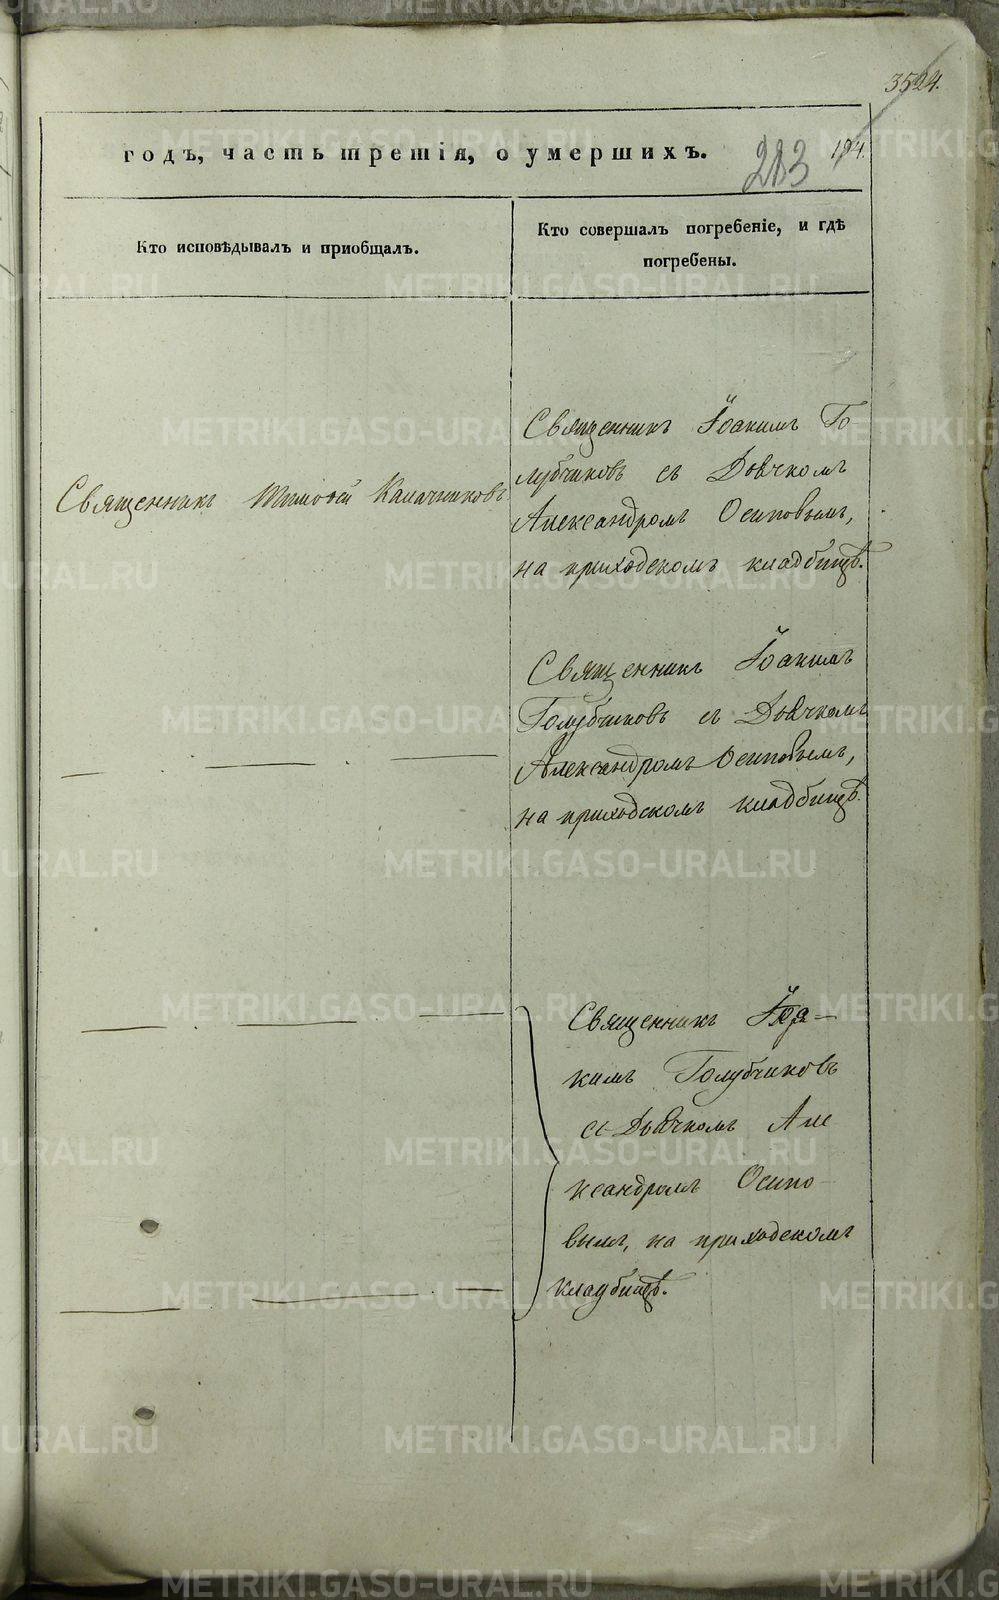 3524.
годъ, часть третія, о умершихъ.
283
Кто исповѣдывалъ и приобщалъ.
Кто совершалъ погребеніе, и гдѣ
погребены.
Священникъ Тимоѳей Калачниковъ
Священникъ Іоакимъ Го-
лубчиковъ съ Дьячкомъ
Александромъ Осиповымъ,
на приходскомъ кладбищѣ.
Священникъ Іоакимъ
Голубчиковъ съ Дьячкомъ
Александромъ Осиповымъ,
на приходскомъ кладбищѣ.
Священникъ Іоа-
кимъ Голубчиковъ
съ Дьячкомъ Але
ксандромъ Осипо-
вымъ, на приходскомъ
кладбищѣ.
METRIKI.GASO-URAL.RU